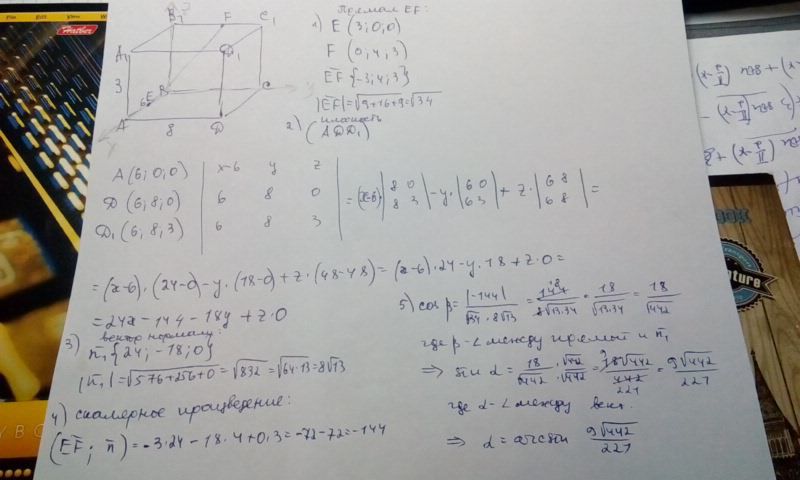 Прямая EF:
1) E (3; 0; 0)
F (0; 4; 3)
EF {-3; 4; 3}
|EF| = √9+16+9 = √34
2) плоскость
(ADD₁)
B₁ F C₁
A₁ D₁
3
6 E B C
A 8 D
A (6; 0; 0)
D (6; 8; 0)
D₁ (6; 8; 3)
| x-6 y z |
| 6 8 0 |
| 6 8 3 |
= (x-6) · |8 0; 8 3| - y · |6 0; 6 3| + z · |6 8; 6 8| =
= (x-6) · (24-0) - y · (18-0) + z · (48-48) = (x-6) · 24 - y · 18 + z · 0 =
= 24x - 144 - 18y + z · 0
3) вектор нормали:
n₁ {24; -18; 0}
|n₁| = √576+256+0 = √832 = √64·13 = 8√13
4) скалярное произведение:
(EF; n) = -3·24 - 18·4 + 0·3 = -72-72 = -144
5) cos β = |-144| / √34 · 8√13 = 144 / 8√13·34 = 18 / √13·34 = 18 / √442
где β - ∠ между прямой и n₁
⇒ sin α = 18/√442 · √442/√442 = 18√442 / 442 = 9√442 / 221
где α - ∠ между вект.
⇒ α = arcsin 9√442 / 221
Hatber